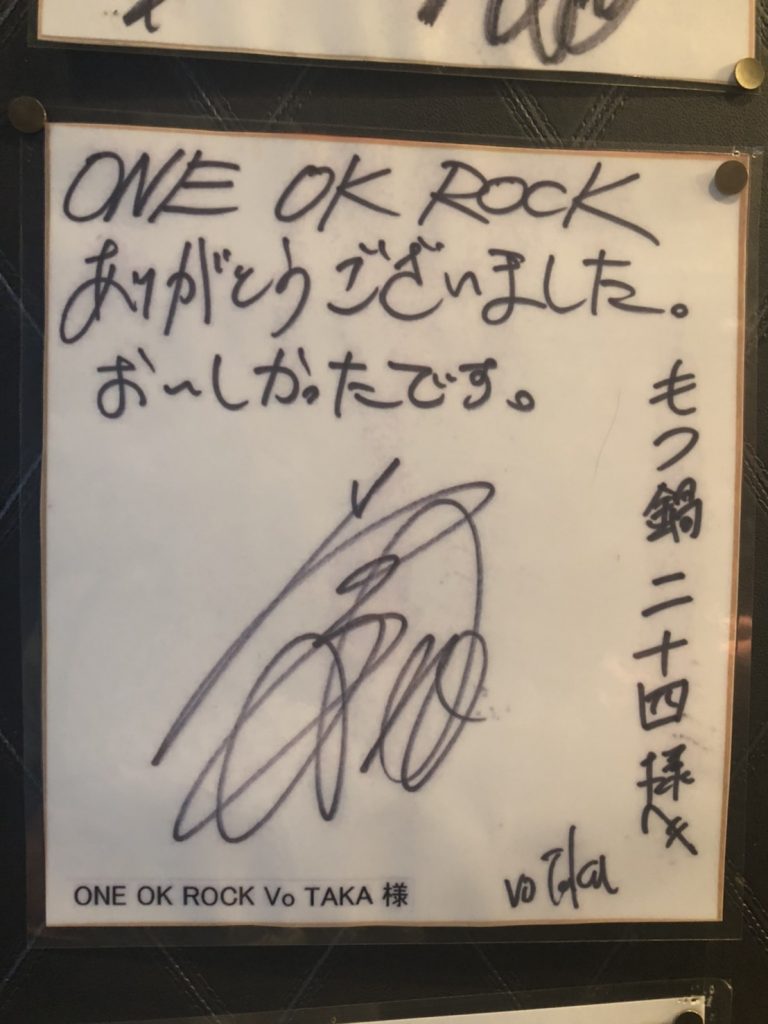 ONE OK ROCK
ありがとうございました。
お〜しかったです。
もつ鍋 二十四 様へ
vo Taka
ONE OK ROCK Vo TAKA 様